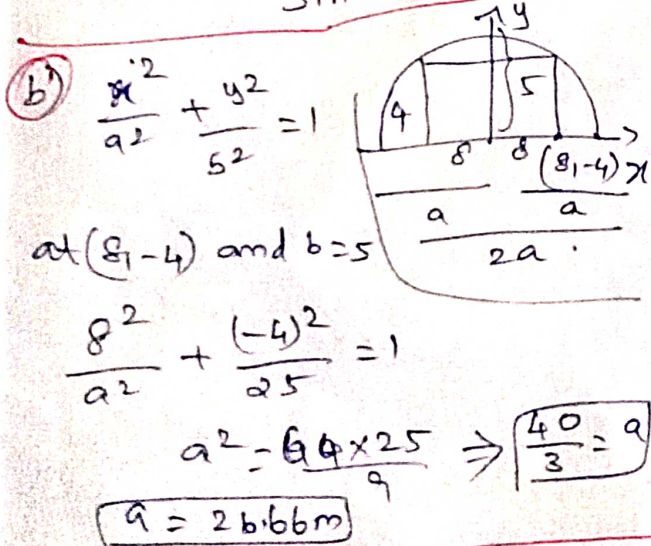 b) x²/a² + y²/5² = 1
y
4
5
8 8
(8,-4) x
a a
2a.
at (8,-4) and b=5
8²/a² + (-4)²/25 = 1
a² = 64×25/9 ⇒ 40/3 = a
a = 26.66m